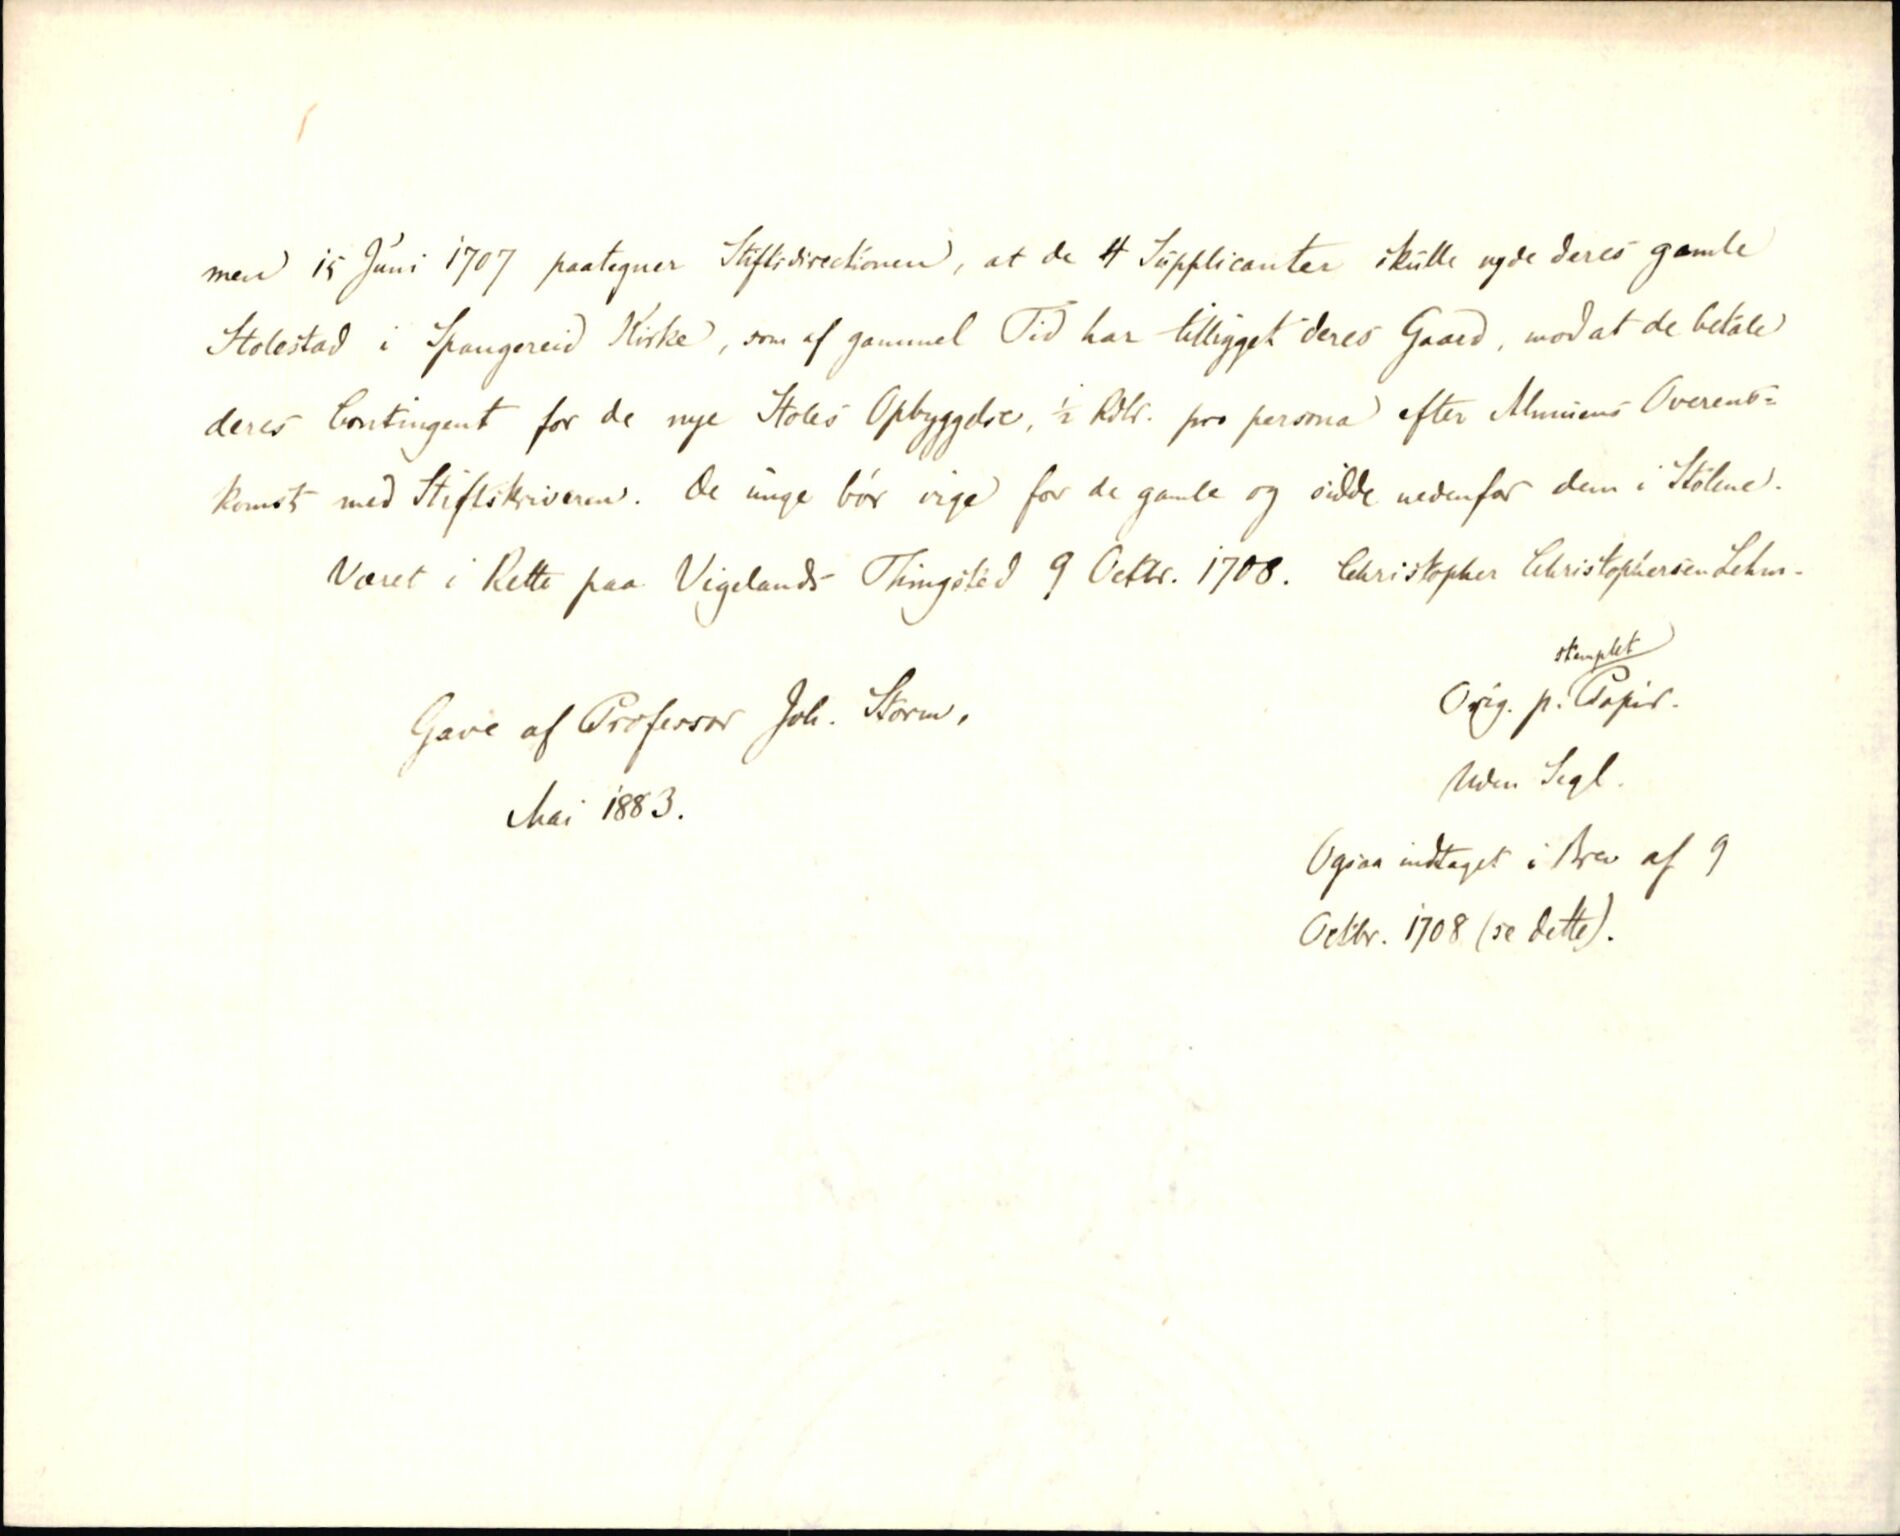 men 15 Juni 1707 paategner Stiftsdirectionen, at de 4 Supplicanter skulle nyde deres gamle
Stolestad i Spangereid Kirke, som af gammel Tid har tilligget deres Gaard, mod at de betale
deres Contingent for de nye Stoles Opbyggelse, ½ Rdlr. pro persona efter Almuens Overens=
komst med Stiftskriveren. De unge bör vige for de gamle og sidde nedenfor dem i Stolene.
Været i Rette paa Vigelands Thingsted 9 Octbr. 1708. Christopher Christophersen Lehm.
stemplet
Orig. p. Papir.
Gave af Professor Joh. Storm,
Uden Segl.
Mai 1883.
Ogsaa indtaget i Brev af 9
Octbr. 1708 (se dette).